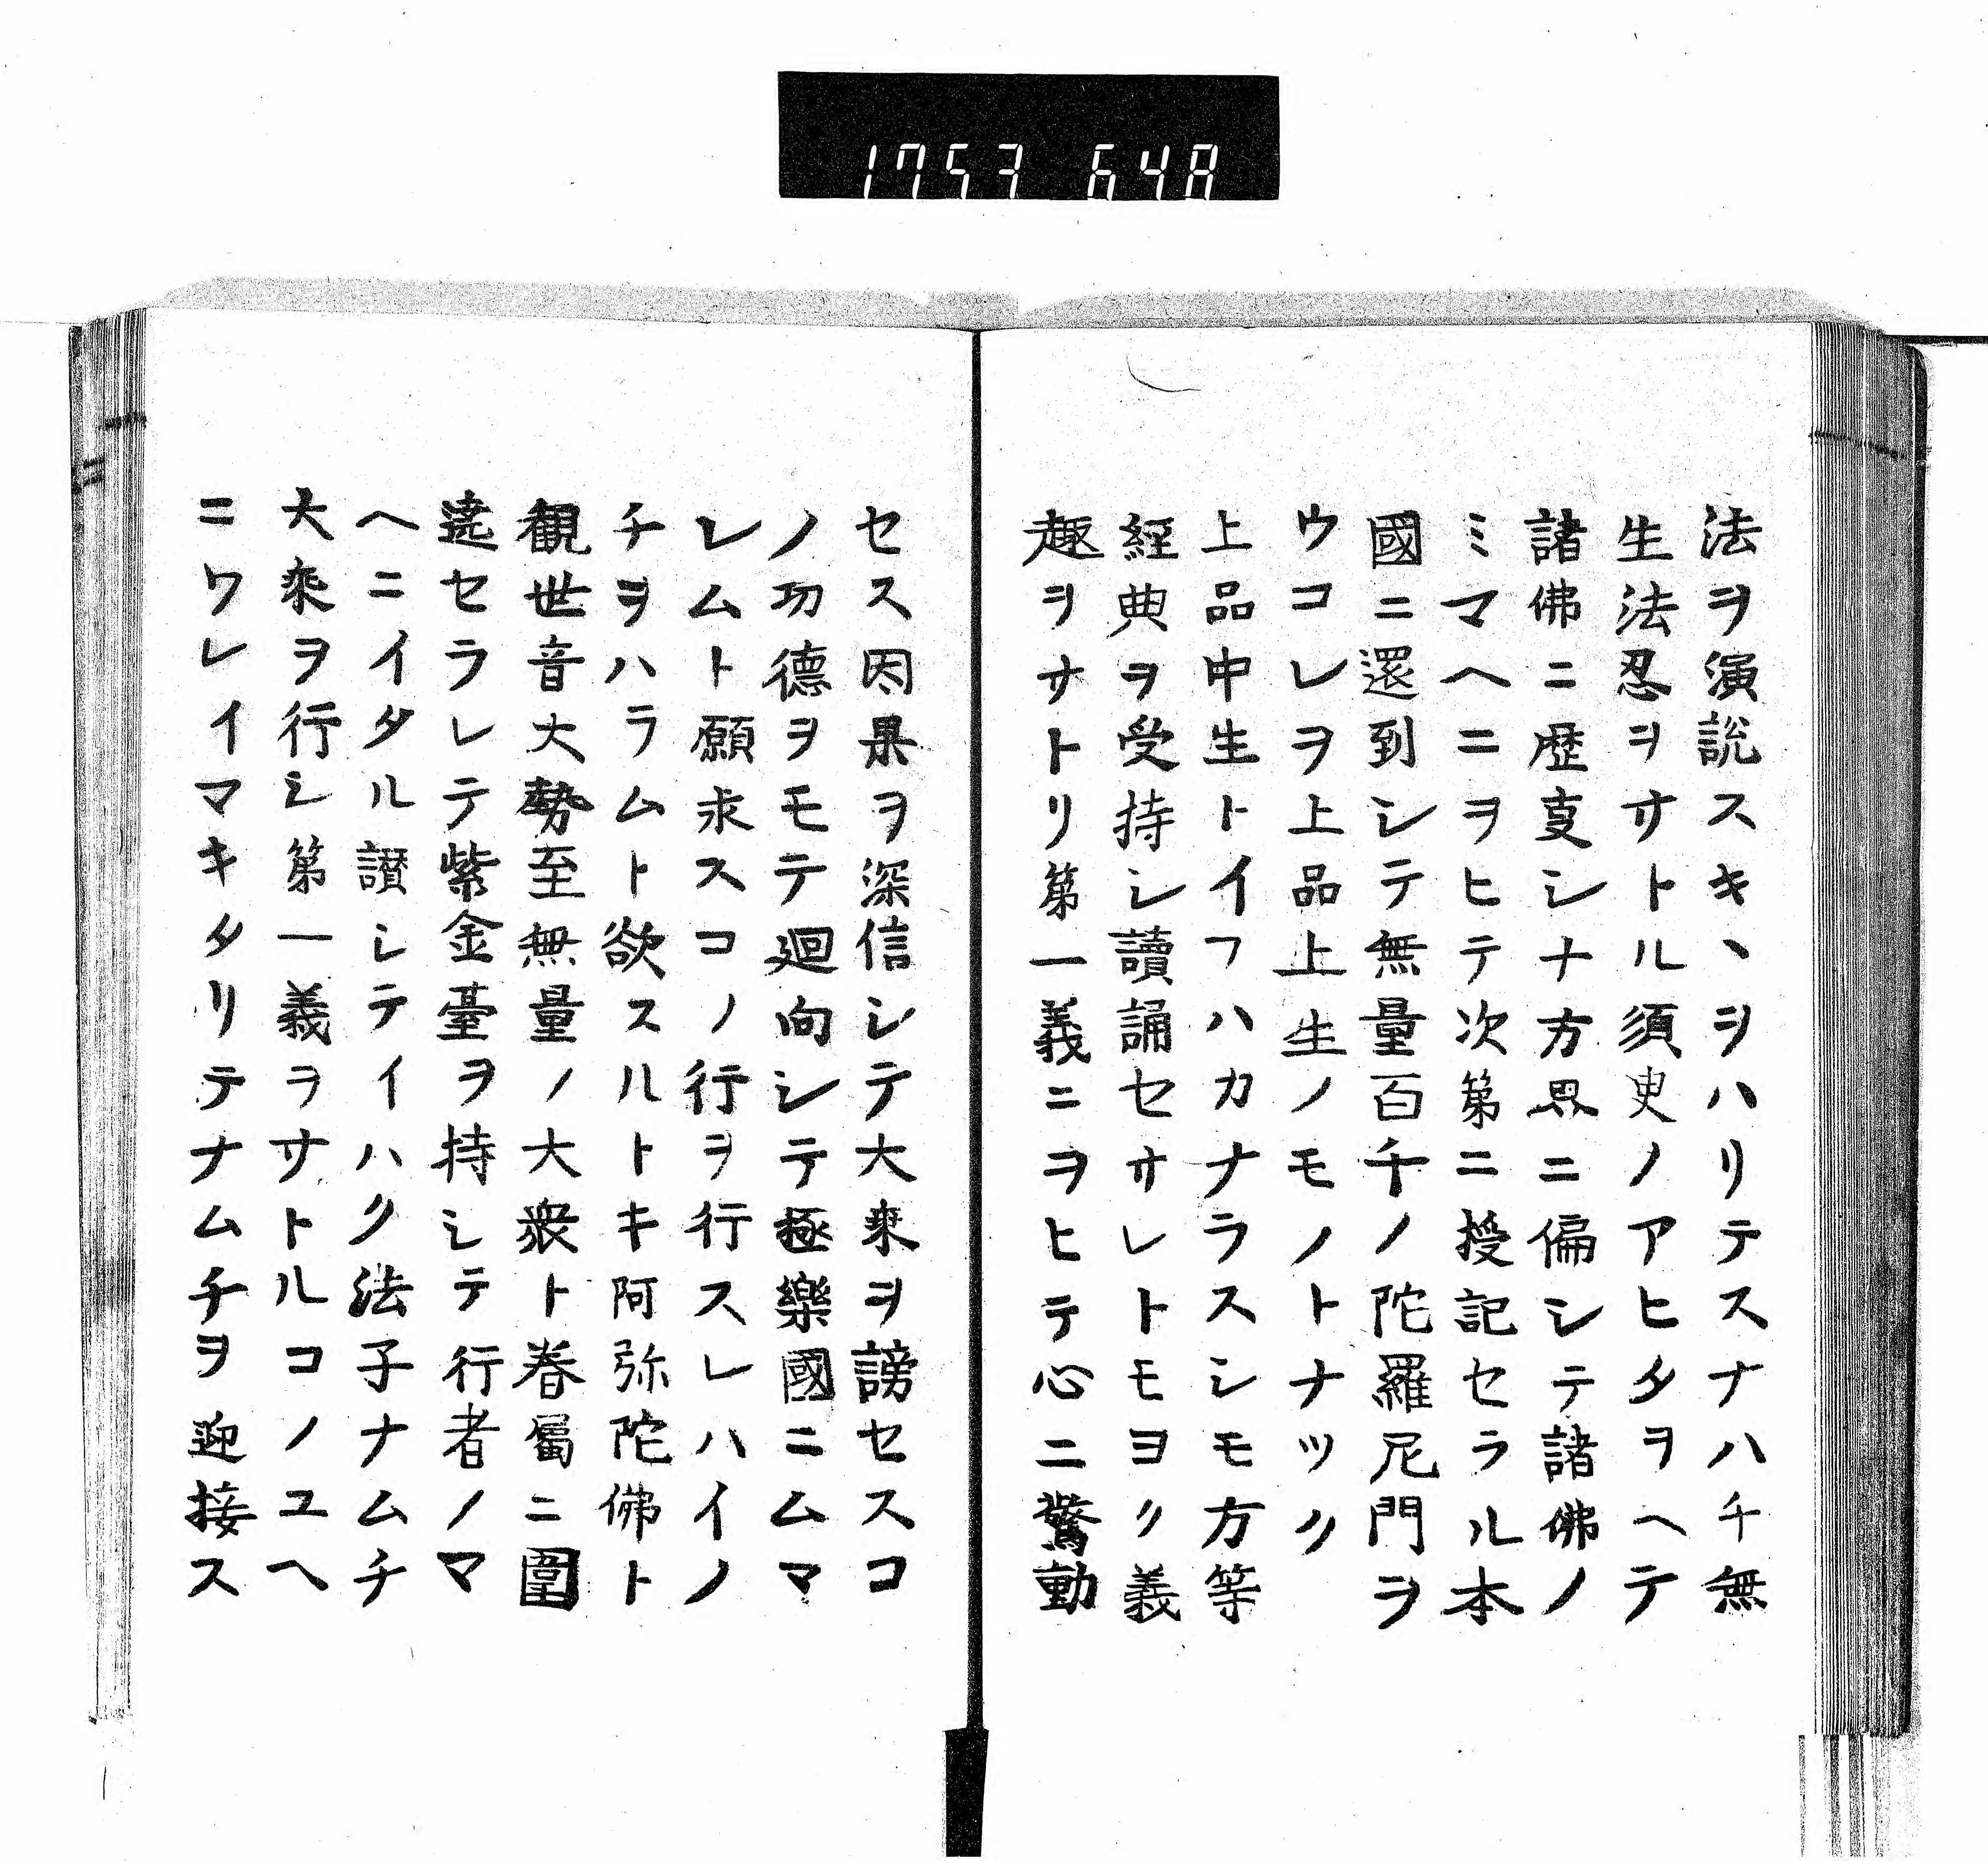 1753 648
法ヲ演説スキヽヲハリテスナハチ無
生法忍ヲサトル須臾ノアヒタヲヘテ
諸佛ニ歴㕝シナ方界ニ偏シテ諸佛ノ
ミマヘニヲヒテ次第ニ授記セラル本
國ニ還到シテ無量百千ノ陀羅尼門ヲ
ウコレヲ上品上生ノモノトナツク
上品中生トイフハカナラスシモ方等
経典ヲ受持シ讀誦セサレトモヨク義
趣ヲサトリ第一義ニヲヒテ心ニ驚動
セス因果ヲ深信シテ大乗ヲ謗セスコ
ノ功德ヲモテ廻向シテ極樂國ニムマ
レムト願求スコノ行ヲ行スレハイノ
チヲハラムト欲スルトキ阿弥陀佛ト
観世音大勢至無量ノ大衆ト眷屬ニ圍
遶セラレテ紫金臺ヲ持シテ行者ノマ
ヘニイタル讃シテイハク法子ナムチ
大乗ヲ行シ第一義ヲサトルコノユヘ
ニワレイマキタリテナムチヲ迎接ス